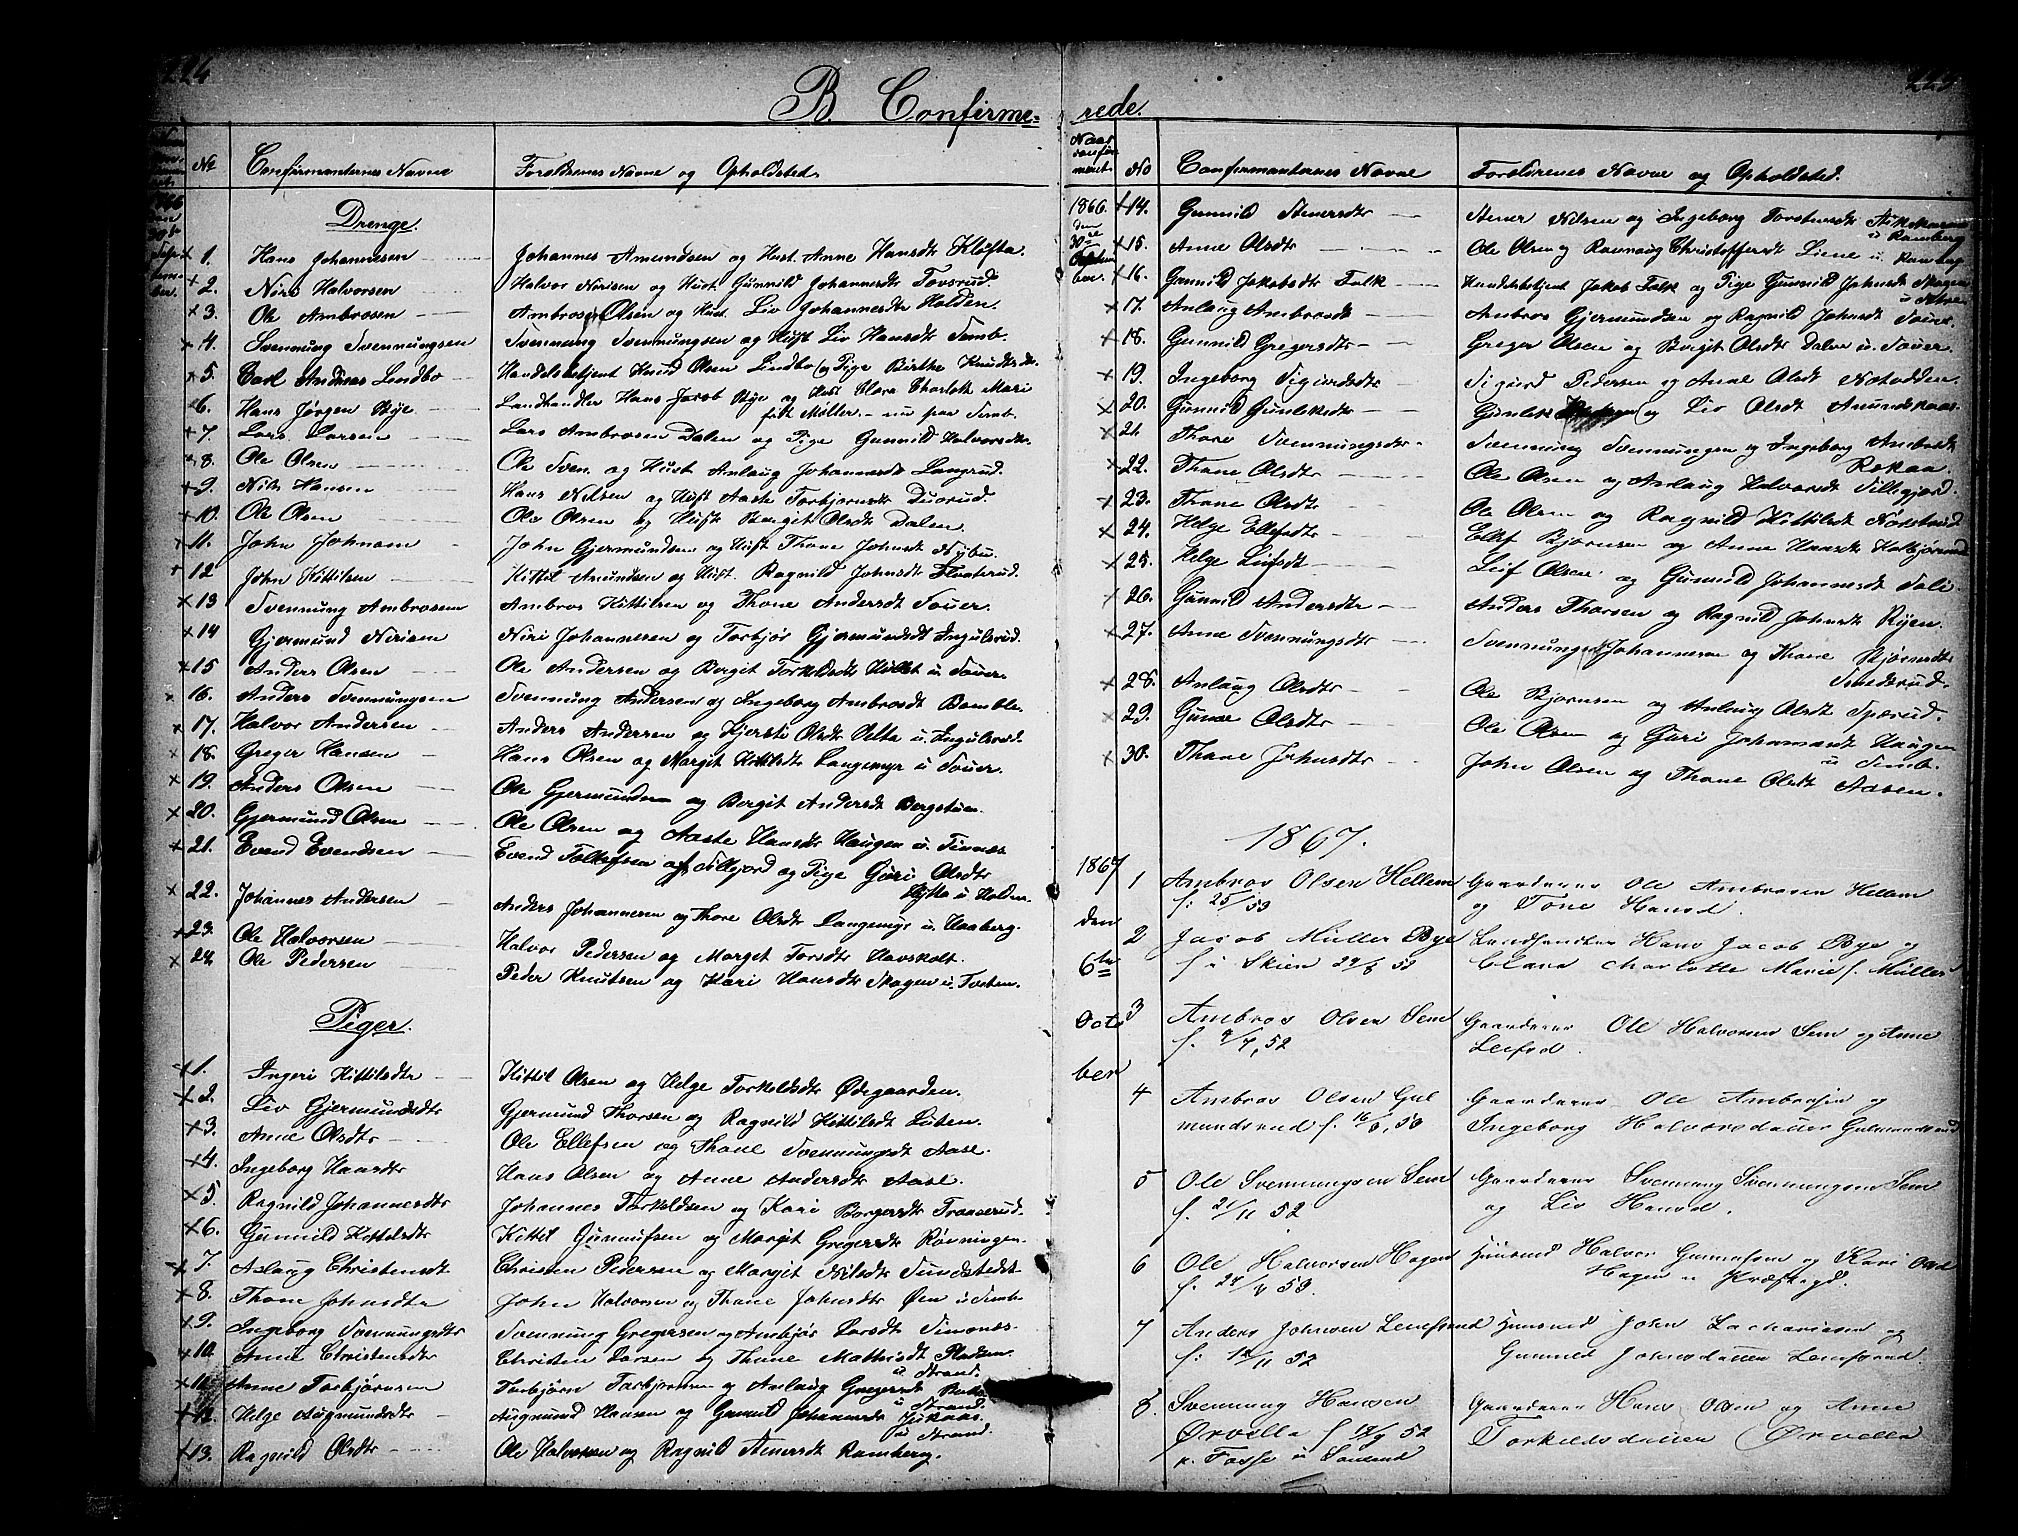 224
B. Confirme-
No Confirmanternes Navne Forældrenes Navne og Opholdsted.
Drenge.
1. Hans Johannesen Johannes Amundsen og Hust. Anne Hansdt Kløfta.
2. Niri Halvorsen Halvor Nirisen og Hust. Gunnild Johannesdt Tovsrud.
3. Ole Ambrosen Ambros Olsen og Hust. Liv Johannesdtr Holden.
4. Svennung Svennungsen Svennung Svennungsen og Hust Liv Hansdt Semb.
5. Carl Andreas Lindbo Handelsbetjent Knud Olsen Lindbo og Pige Birthe Knudtsdt
6. Hans Jørgen Bye Landhandler Hans Jacob Bye og Hust Clara Charlotte Mari
født Møller - nu paa Semb.
7. Lars Larsen Lars Ambrosen Dalen og Pige Gunnild Halvorsdtr.
8. Ole Olsen Ole Sven. og Hust Anlaug Johannesdt Langrud.
9. Nils Hansen Hans Nilsen og Hust Aaste Torbjørnsdt Duorud.
10. Ole Olsen Ole Olsen og Hust Bergit Olsdt Dalen.
11. John Johnsen John Gjermundsen og Hust Thone Johnsdt Nybu.
12 John Kittilsen Kittil Amundsen og Hust. Ragnild Johnsdt Flaaterud.
13 Svennung Ambrosen Ambros Kittilsen og Thone Andersdt Sauer.
14 Gjermund Nirisen Niri Johannesen og Torbjør Gjermundsdt Ingulsrud.
15 Anders Olsen Ole Andersen og Bergit Torkildsdt Hullet u. Sauer.
16. Anders Svennungsen Svennung Andersen og Ingeborg Ambrosdt Bamble.
17. Halvor Andersen Anders Andersen og Kjersti Olsdt Velta u. Ingulsrud.
18. Greger Hansen Hans Olsen og Margit Kittilsdt Langemyr u Sauer.
19. Anders Olsen Ole Gjermundsen og Bergit Andersdt Bergstuen.
20. Gjermund Olsen Ole Olsen og Aaste Hansdtr Haugen u. Tinnæs
21. Evend Evendsen Evend Folkefsen af Sillejord og Pige Guri Olsdtr
Hytta u Holden.
22. Johannes Andersen Anders Johannesen og Thore Olsdtr Langemyr u. Haaberg.
23. Ole Halvorsen Halvor Pedersen og Marget Torsdtr Havskolt.
24. Ole Pedersen Peder Knutsen og Kari Hansdtr Skogen u. Tveten.
Piger.
1. Ingeri Kittilsdtr Kittil Olsen og Helge Torkeldsdtr Ødegaarden.
2. Liv Gjermundsdtr Gjermund Thorsen og Ragnild Kittilsdt Liaten.
3. Anne Olsdtr Ole Ellefsen og Thone Svennungsdt Aase.
4. Ingeborg Hansdtr Hans Olsen og Anne Andersdtr Aase.
5. Ragnild Johannesdtr Johannes Torkeldsen og Kari Borgersdt Tranerud.
6. Gunnild Kittilsdtr Kittil Gunnufsen og Margit Gregersdt Røvningen.
7. Aslaug Christensdt Christen Pedersen og Margit Nilsdtr Sundstedet.
8. Thone Johnsdtr John Halvorsen og Thone Johnsdtr Øen u Semb.
9. Ingeborg Svennungsdtr Svennung Gregersen og Ambjør Larsdt Simonæs.
10. Anne Christensdtr Christen Larsen og Thone Mathisdt Pladsen
u Strand.
11. Anne Torbjørnsen Torbjørn Torbjørnsen og Anlaug Gregersdt
u Strand.
12. Helge Augmundsdtr Augmund Hansen og Gunnild Johannesdtr
u Strand.
13. Ragnild Olsdtr Ole Halvorsen og Ragnild Stenersdt Ramberg.
225
rede.
Naar confirmeret. No Confirmanternes Navne Forældrenes Navne og Opholdsted.
1866. 14. Gunnild Stenersdtr Stener Nilsen og Ingeborg Torstensdt
u Ramberg
den
30te 15. Anne Olsdtr Ole Olsen og Rannaug Christoffersdt Liene u. Ramberg
16. Gunnild Jakobsdtr Falk Handelsbetjent Jakob Falk og Pige Gunnild Johnsdt Skogen
17. Anlaug Ambrosdt Ambros Gjermundsen og Ragnild Johnsdt Sauer.
18. Gunnild Gregersdtr Greger Olsen og Bergit Olsdtr Dalen u. Sauer.
19. Ingeborg Sigurdsdtr Sigurd Pedersen og Anne Olsdt Notodden.
20. Gunnild Gunleksdtr Gunlek og Liv Olsdt Amundskaas.
21. Thore Svennungsdtr Svennung Svennungsen og Ingeborg Ambrosdt
Rokaa.
22. Thone Olsdtr Ole Olsen og Anlaug Halvorsdt Sillegjord.
23. Thone Olsdtr Ole Olsen og Ragnild Kittilsdt Nordstrud
24. Helge Ellefsdtr Ellef Bjørnsen og Anne Hansdt
25. Helge Leifsdt Leif Olsen og Gunnild Johannesdt Sali
26. Gunnild Andersdtr Anders Thorsen og Ragnild Johnsdt Ryen.
27. Anne Svennungsdtr Svennung Johannesen og Thone Bjørnsdtr
Smedsrud.
28. Anlaug Olsdtr Ole Bjørnsen og Anlaug Olsdt Sperud.
29. Gunne Olsdtr Ole Olsen og Guri Johannesdt Haugen
u Semb.
30. Thone Johnsdtr John Olsen og Thone Olsdt Aasen.
1867.
1867 1 Ambros Olsen Hellem Gaardeier Ole Ambrosen Hellem
f: 25/ 53 og Tone Hansd.
den
2 Jacob Müller Bye Landhandler Hans Jacob Bye og
6te f i Skien 29/8 53 Clara Charlotte Marie f. Müller
Octo 3 Ambros Olsen Sem Gaardeier Ole Halvorsen Sem og Anne
f. 9/7, 52 Leifsd.
ber
4 Ambros Olsen Gul Gaardeier Ole Ambrosen og
mundsrud f. 16/6, 53 Ingeborg Halvorsdatter Gulmundsrud
5 Ole Svennungsen Sem Gaardeier Svennung Svennungsen Sem
f. 21/11 52 og Liv Hansd.
6 Ole Halvorsen Hagen Huusmd Halvor Gunnufsen og Kari Olsd
f. 24/ 53. Hagen u Præstegd.
7 Anders Johnsen Leenesrud Huusmd John Zachariasen og
f: 14/11 52 Gunnild Johnsdatter Leenesrud.
8. Svennung Hansen Gaardeier Hans Olsen og Anne
Ørvella f 12/9 52 Torkildsdatter Ørvella
p. Fosse i Sauland